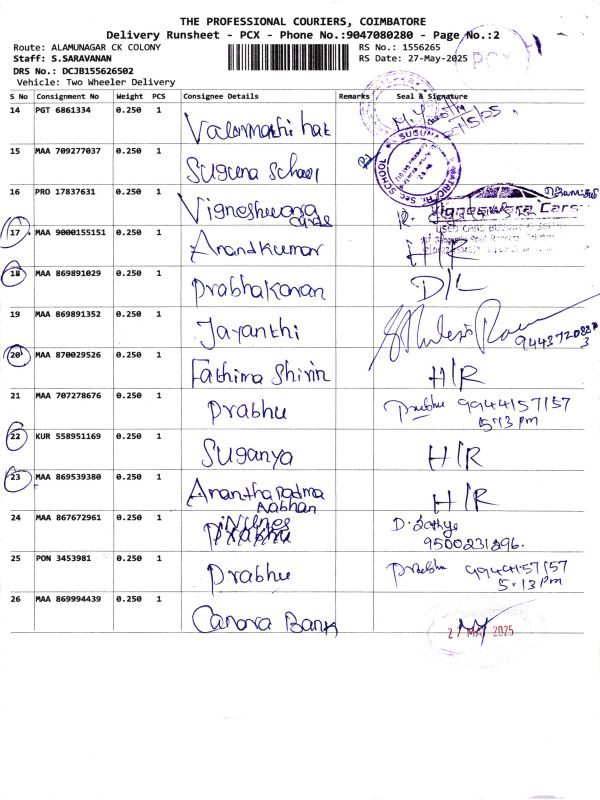 THE PROFESSIONAL COURIERS, COIMBATORE
Delivery Runsheet - PCX - Phone No.:9047080280 - Page No.:2
Route: ALAMUNAGAR CK COLONY
RS No.: 1556265
Staff: S.SARAVANAN
RS Date: 27-May-2025
PCX
DRS No.: DCJB155626502
Vehicle: Two Wheeler Delivery
S No Consignment No Weight PCS Consignee Details Remarks Seal & Signature
14 PGT 6861334 0.250 1 Valarmathi
15 MAA 709277037 0.250 1 Suguna School
SUGUNA
MATRIC HR SEC SCHOOL
16 PRO 17837631 0.250 1 Vigneshwara Cards
Vigneshwara Cars
17 MAA 9000155151 0.250 1 Anandkumar H/R
18 MAA 869891029 0.250 1 Prabhakaran D/L
19 MAA 869891352 0.250 1 Jayanthi
20 MAA 870029526 0.250 1 Fathima Shirin H/R
21 MAA 707278676 0.250 1 Prabhu Prabhu 9944157157
5:13 pm
22 KUR 558951169 0.250 1 Suganya H/R
23 MAA 869539380 0.250 1 Anantha Padma
nabhan H/R
24 MAA 867672961 0.250 1 D. Sathya
9500231896.
25 PON 3453981 0.250 1 Prabhu Prabhu 9944157157
5:13 pm
26 MAA 869994439 0.250 1 Canara Bank
MAY 2025